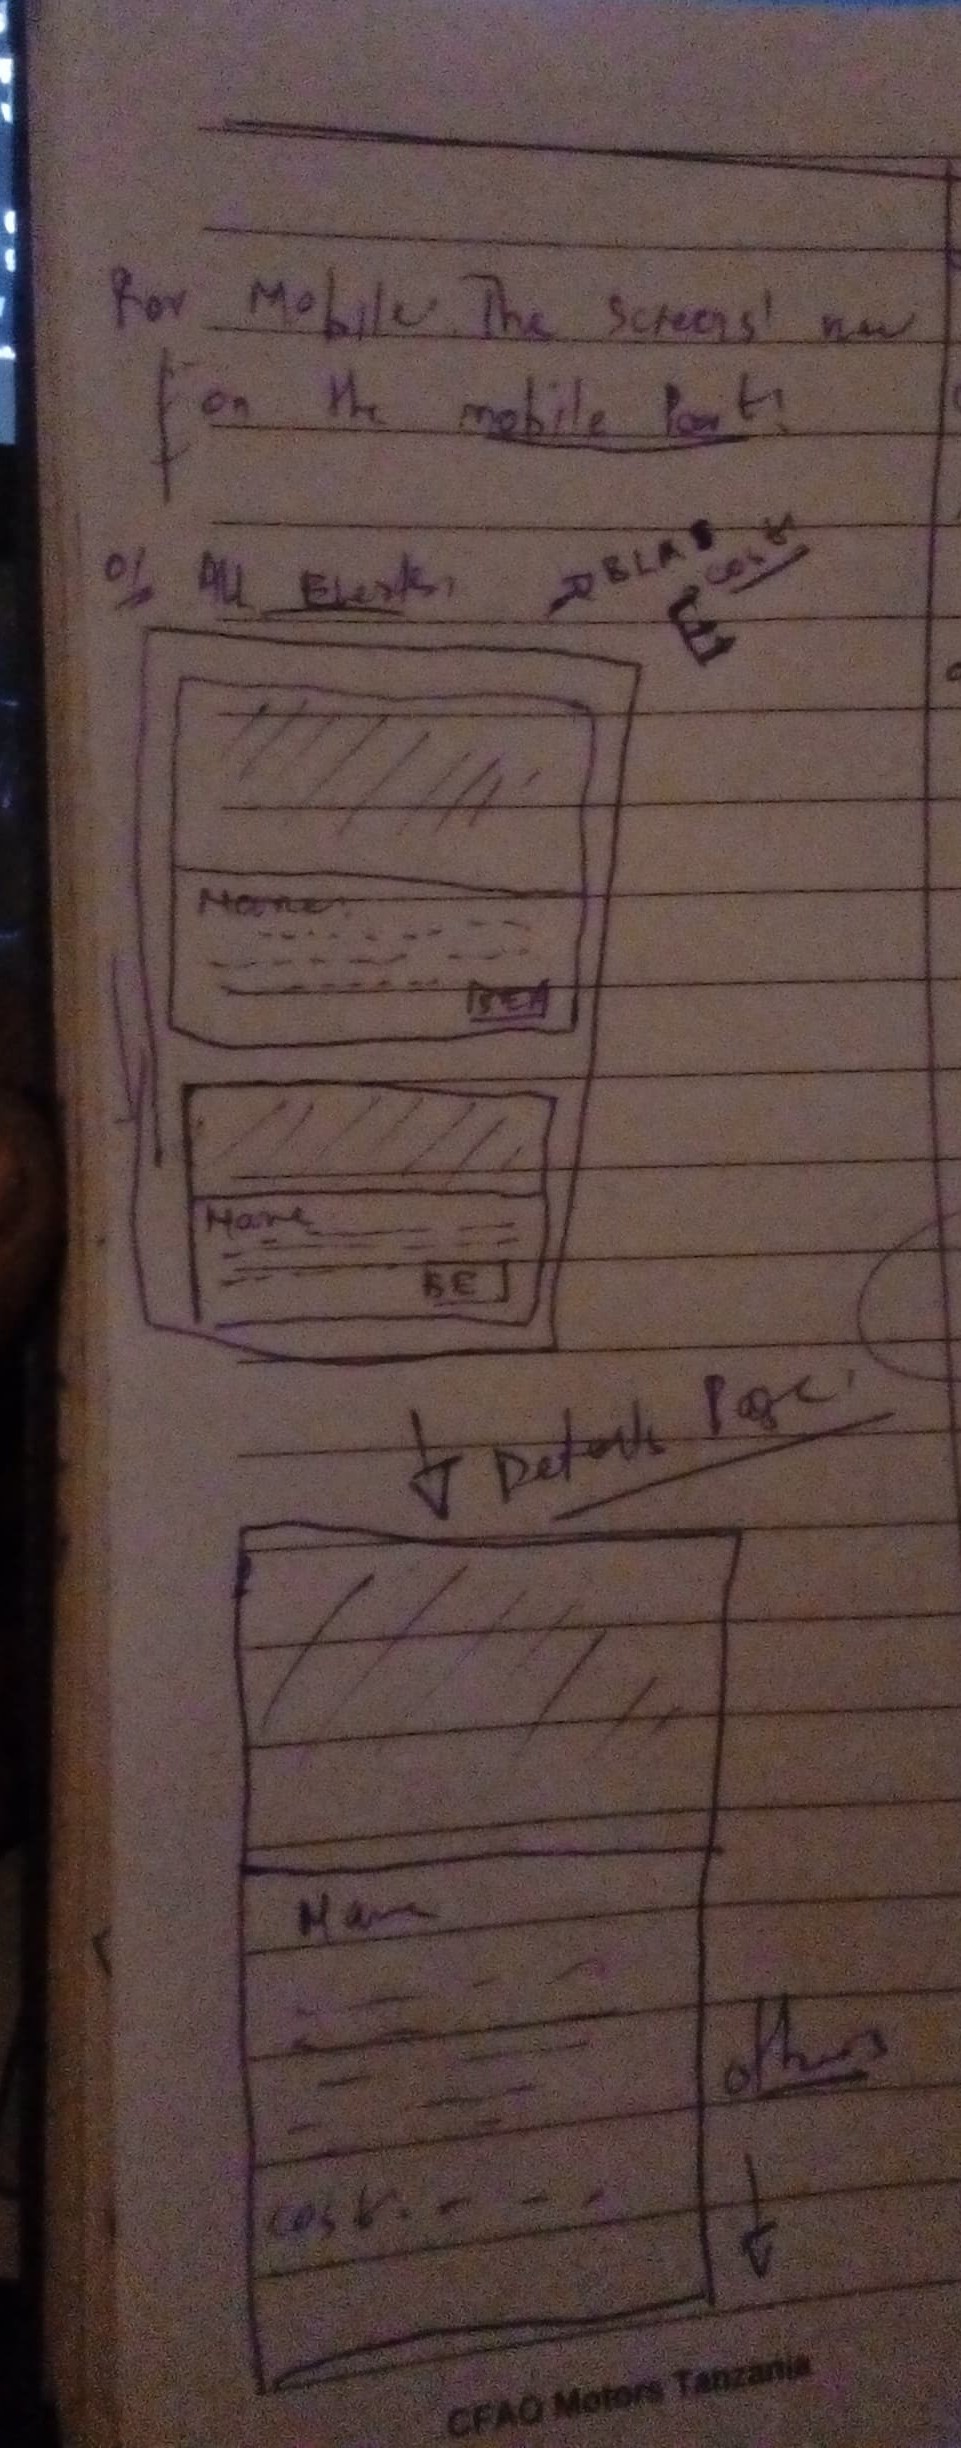 For Mobile The screens' new
on the mobile Part:
01 All
BLA
cost
Name:
Name
BE
Details Page'
Name
others
cost:
CFAO Motors Tanzania